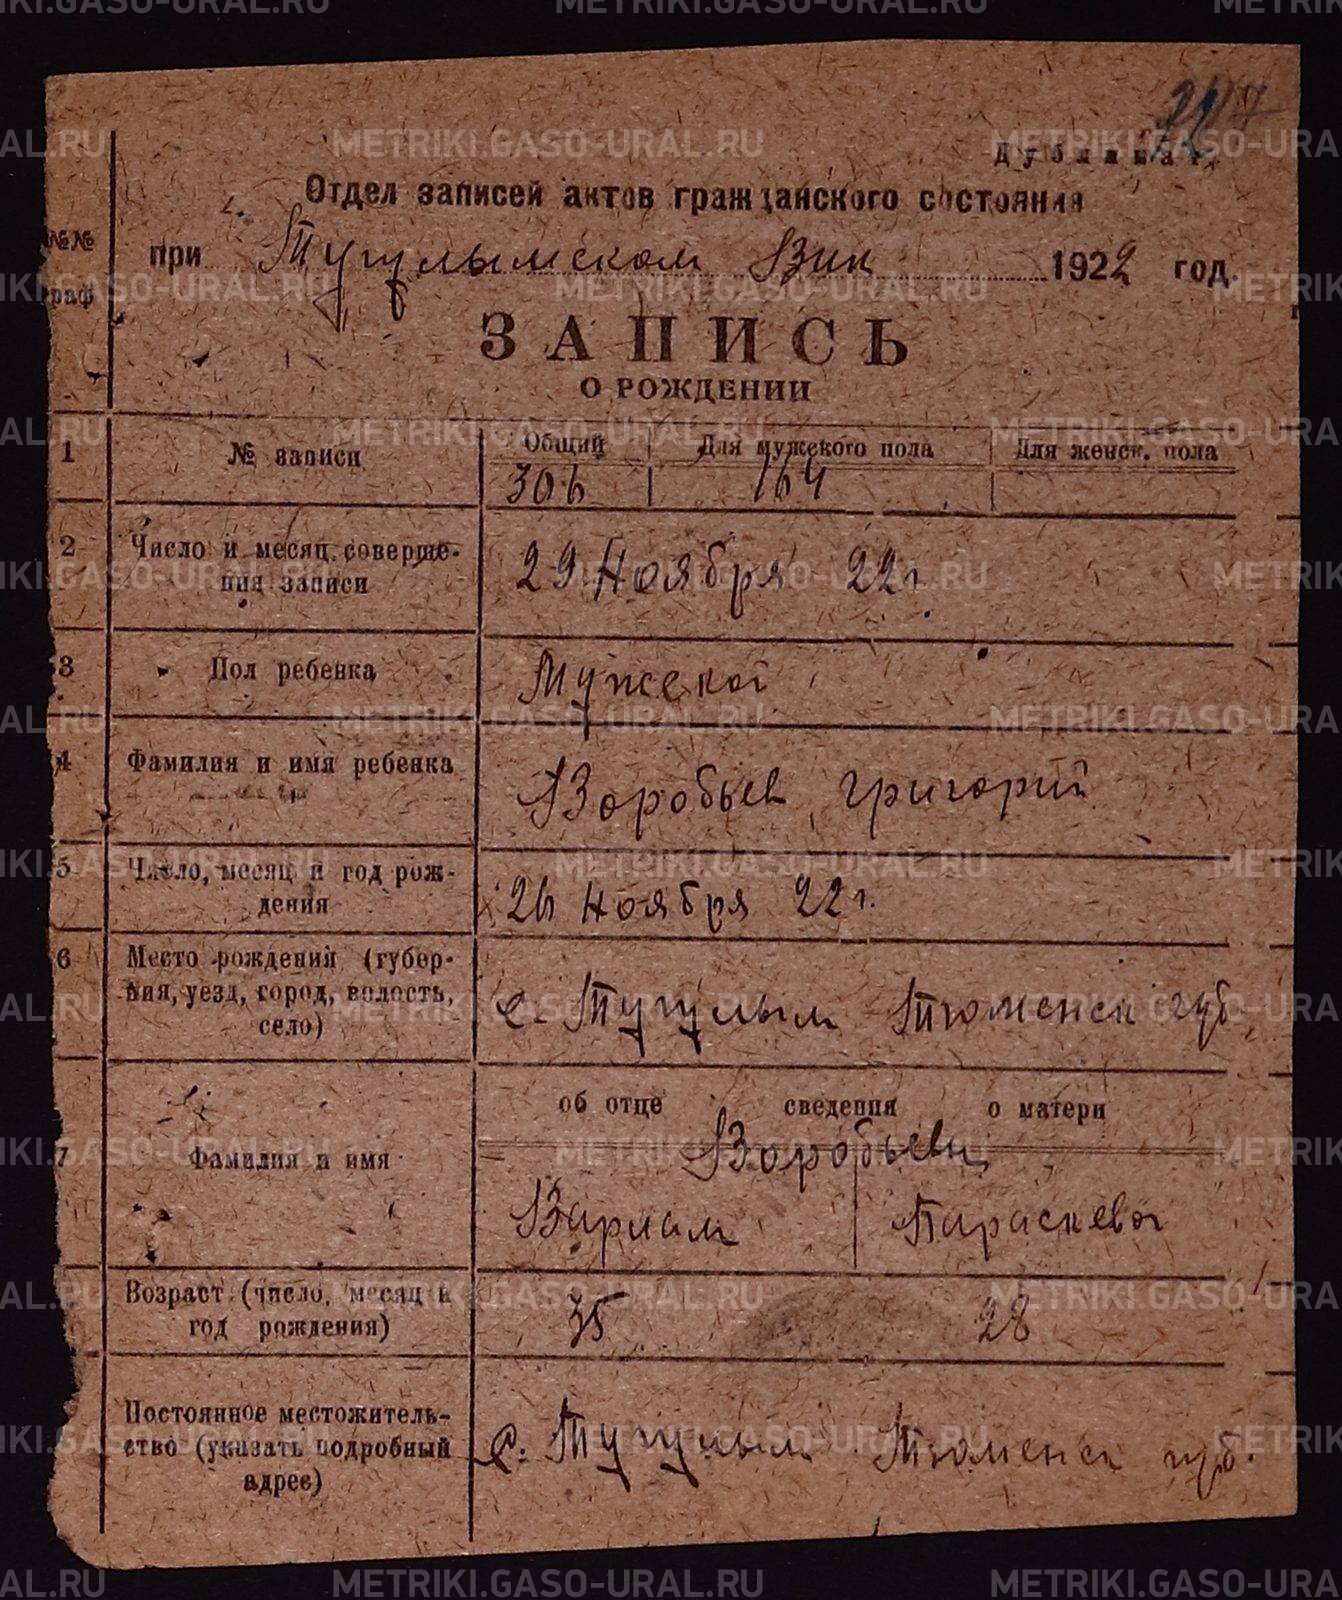 Дубликат
Отдел записей актов гражданского состояния
№№ граф
при Тугулымском Вик 1922 год.
ЗАПИСЬ
О РОЖДЕНИИ
1 № записи Общий Для мужского пола Для женск. пола
306 164
2 Число и месяц соверше-
ния записи
29 Ноября 22 г.
3 Пол ребенка Мужской
4 Фамилия и имя ребенка Воробьев Григорий
5 Число, месяц и год рож-
дения
26 Ноября 22 г.
6 Место рождений (губер-
ния, уезд, город, волость,
село)
с. Тугулым Тюменск губ.
об отце сведения о матери
7 Фамилия и имя
Воробьевы
Варлам Параскева
Возраст (число, месяц и
год рождения)
35 28
Постоянное местожитель-
ство (указать подробный
адрес)
с. Тугулым Тюменск губ.
METRIKI.GASO-URAL.RU